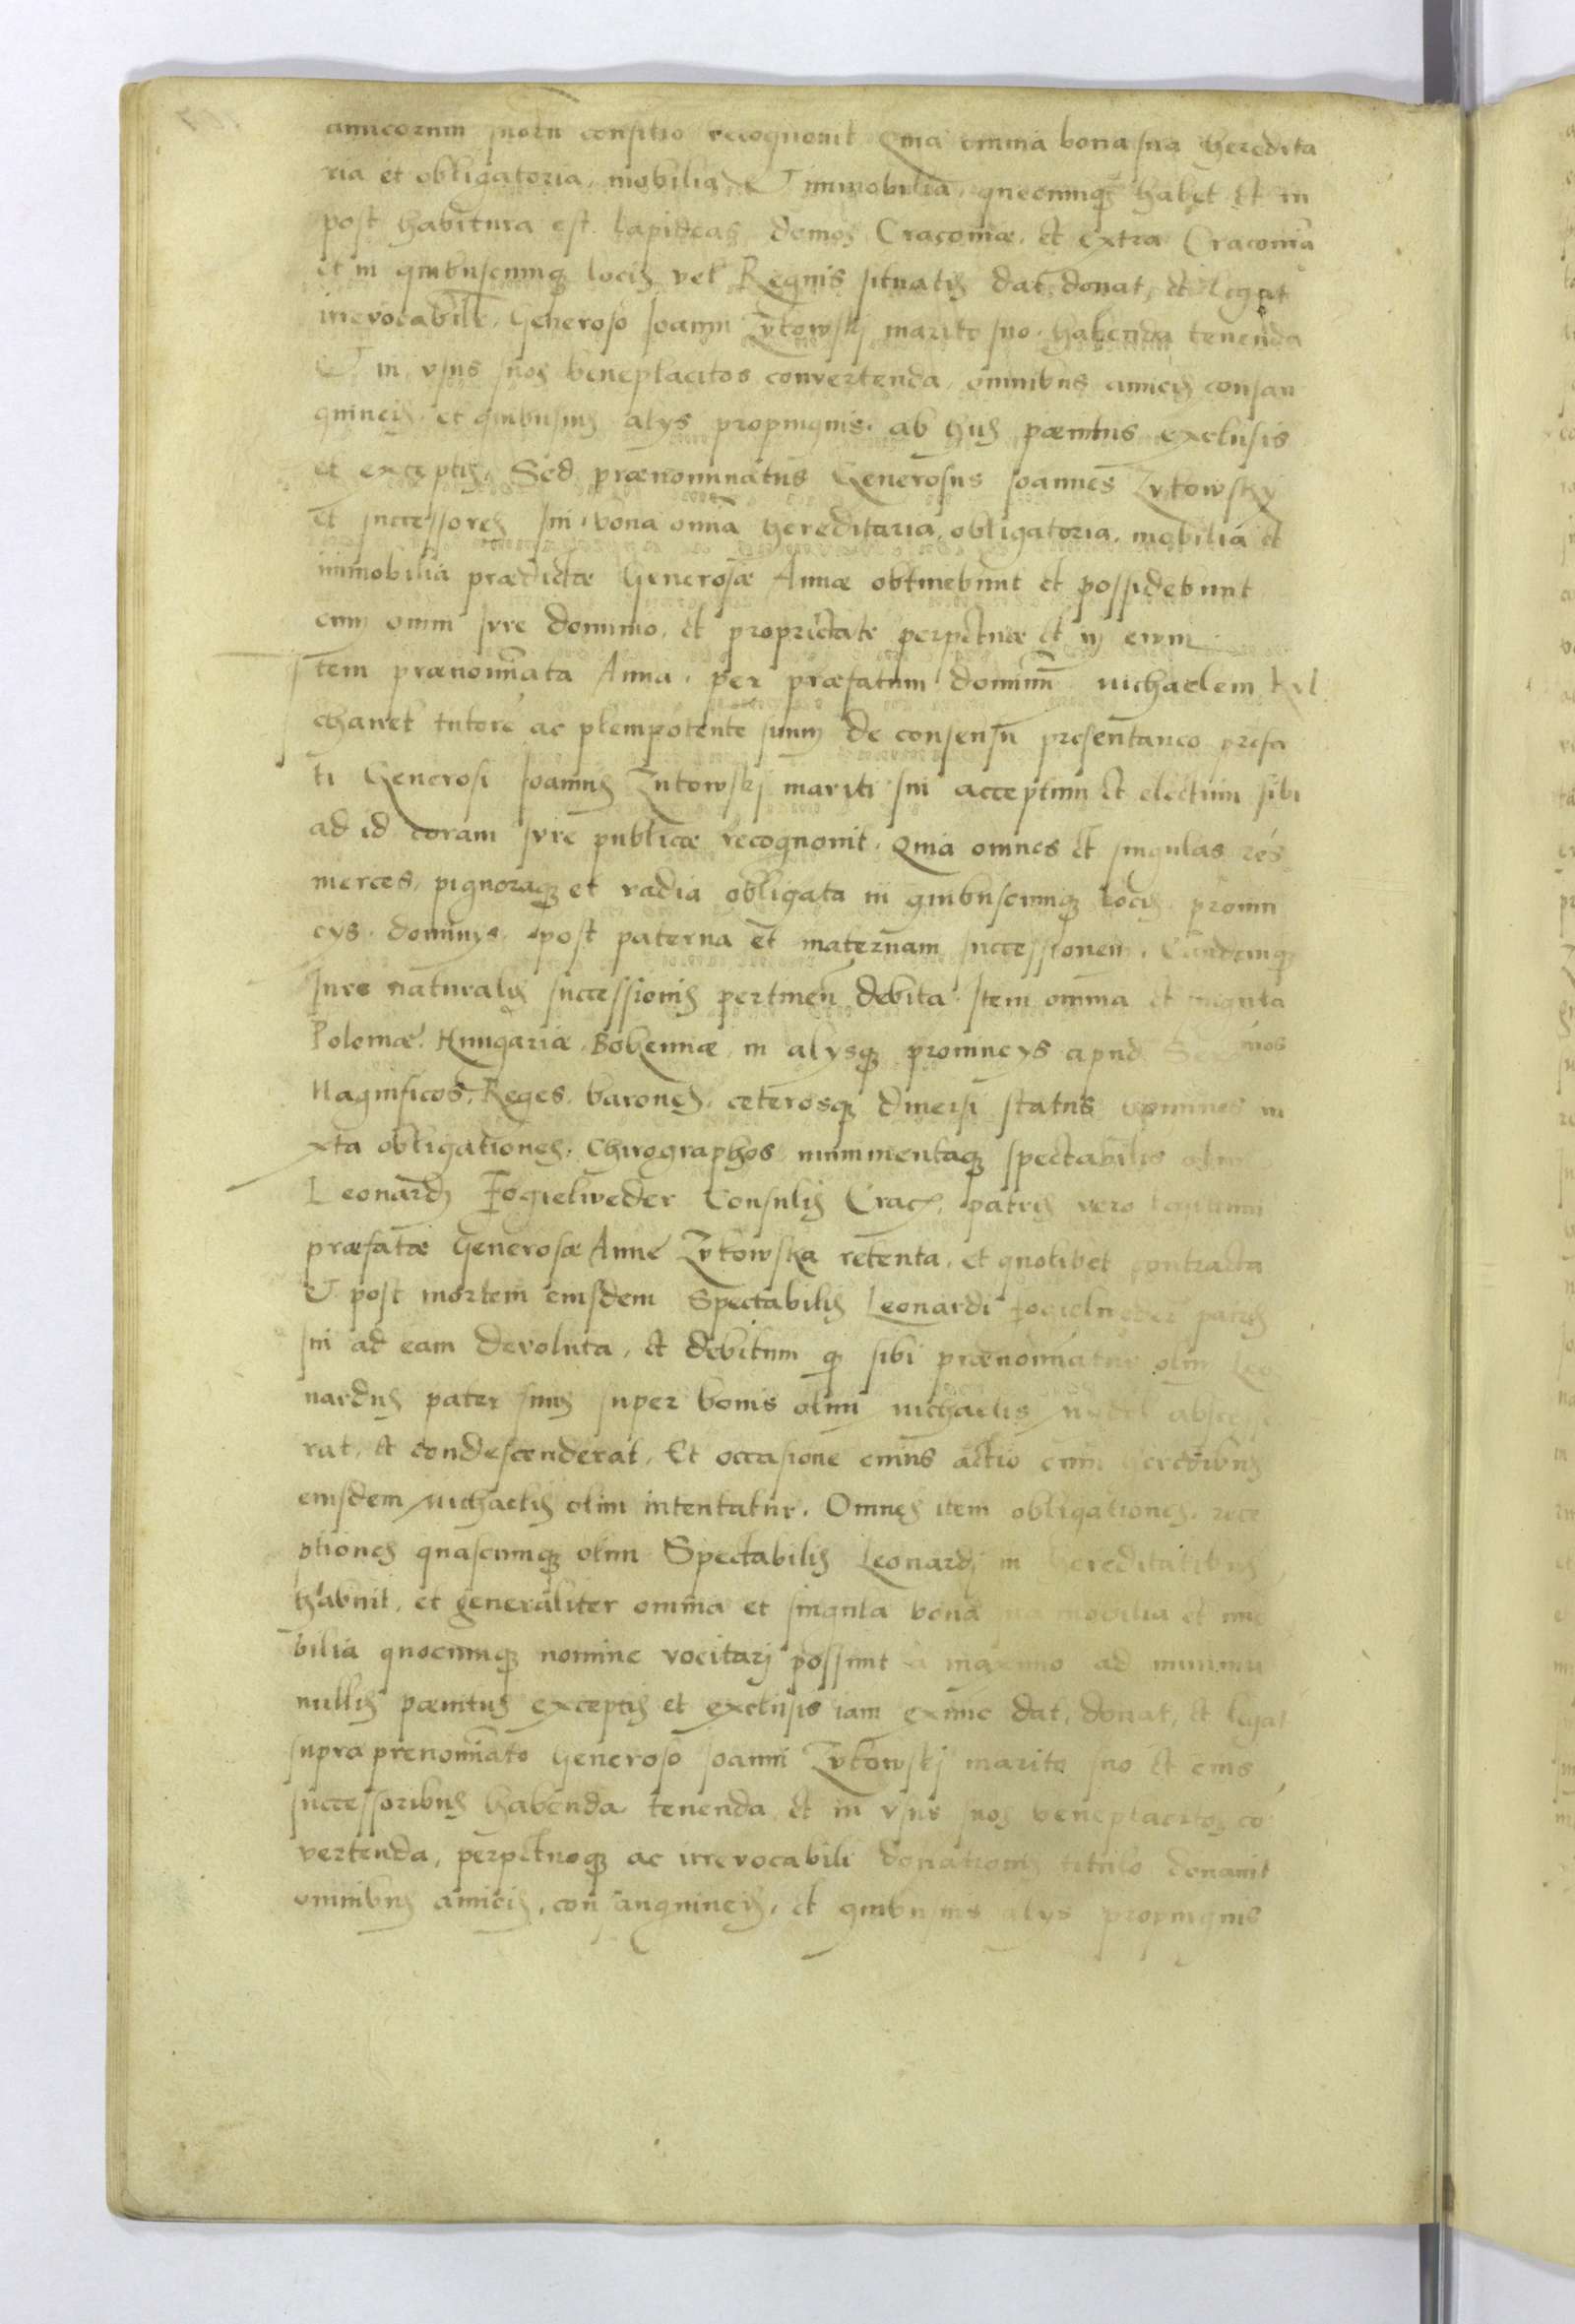 amicorum suoru consilio recognovit Quia omnia bona sua heredita
ria et obligatoria, mobilia, & immobilia, quecunq3 habet et in
post habitura est. lapideas domos Cracoviæ, et extra Cracoviā
et in quibuscunq3 locis vel Regnis situatis dat, donat, et legat
irrevocabile, Generoso Joanni Zytowskj marito suo. habenda tenenda
& in, vsus suos beneplacitos convertenda, omnibus amicis consan
guineis et quibusuis alys propinquis. ab his pænitus exclusis
et exceptis. Sed prænominatus Generosus Joannes Zytowsky
et successores sui bona omnia hereditaria, obligatoria, mobilia et
immobilia prædictæ Generosæ Annæ obtinebunt et possidebunt
cum omni Jvre dominio, et proprietate perpetuæ et in ewm
Item prænominata Anna, per præfatum dominum Michaelem Kyl
chanek tutore ac plenipotente suum de consensu presentaneo prefa
ti Generosi Joannis Zutowskj mariti sui acceptum et electum sibi
ad id coram Jvre publicæ recognovit. Quia omnes et singulas res
merces, pignoraq3 et vadia obligata in quibuscunq3 locis provin
cys. dominys. post paterna et maternam successionem. Eandemq3
Jure naturalis successionis pertinen debita. Item omnia et singula
Poloniæ. Hungariæ. Bohemiæ, in alysq3 provincys apud Serᵐᵒˢ
Magnificos, Reges, barones, ceterosq3 diuersi status homines iu
xta obligationes. Chirographos munimentaq3 spectabilis olim
Leonardj Fogielweder Consulis Crac̄. patris vero legitimi
præfatæ Generosæ Anne Zytowska retenta, et quolibet contracta
& post mortem eiusdem Spectabilis Leonardi Fogielueder patris
sui ad eam devoluta, et debitum q3 sibi prænominatus olim Leo
nardus pater suus super bonis olim Michaelis
rat, et condescenderat, Et occasione cuius actio cum heredibus
eiusdem Michaelis olim intentatur. Omnes item obligationes. rece
ptiones quascunq3 olim Spectabilis Leonardj in hereditatibus
habuit, et generaliter omnia et singula bona sua mobilia et imo
bilia quocunq3 nomine vocitarj possunt a maximo ad minimu
nullis pænitus exceptis et exclusis iam exnunc dat, donat, et legat
supra prenominato Generoso Joanni Zytowskj marito suo et eius
successoribus habenda tenenda et in vsus suos beneplacitos co
vertenda, perpetuoq3 ac irrevocabili donationis titulo donauit
omnibus amicis, consanguineis, et quibusuis alys propinquis